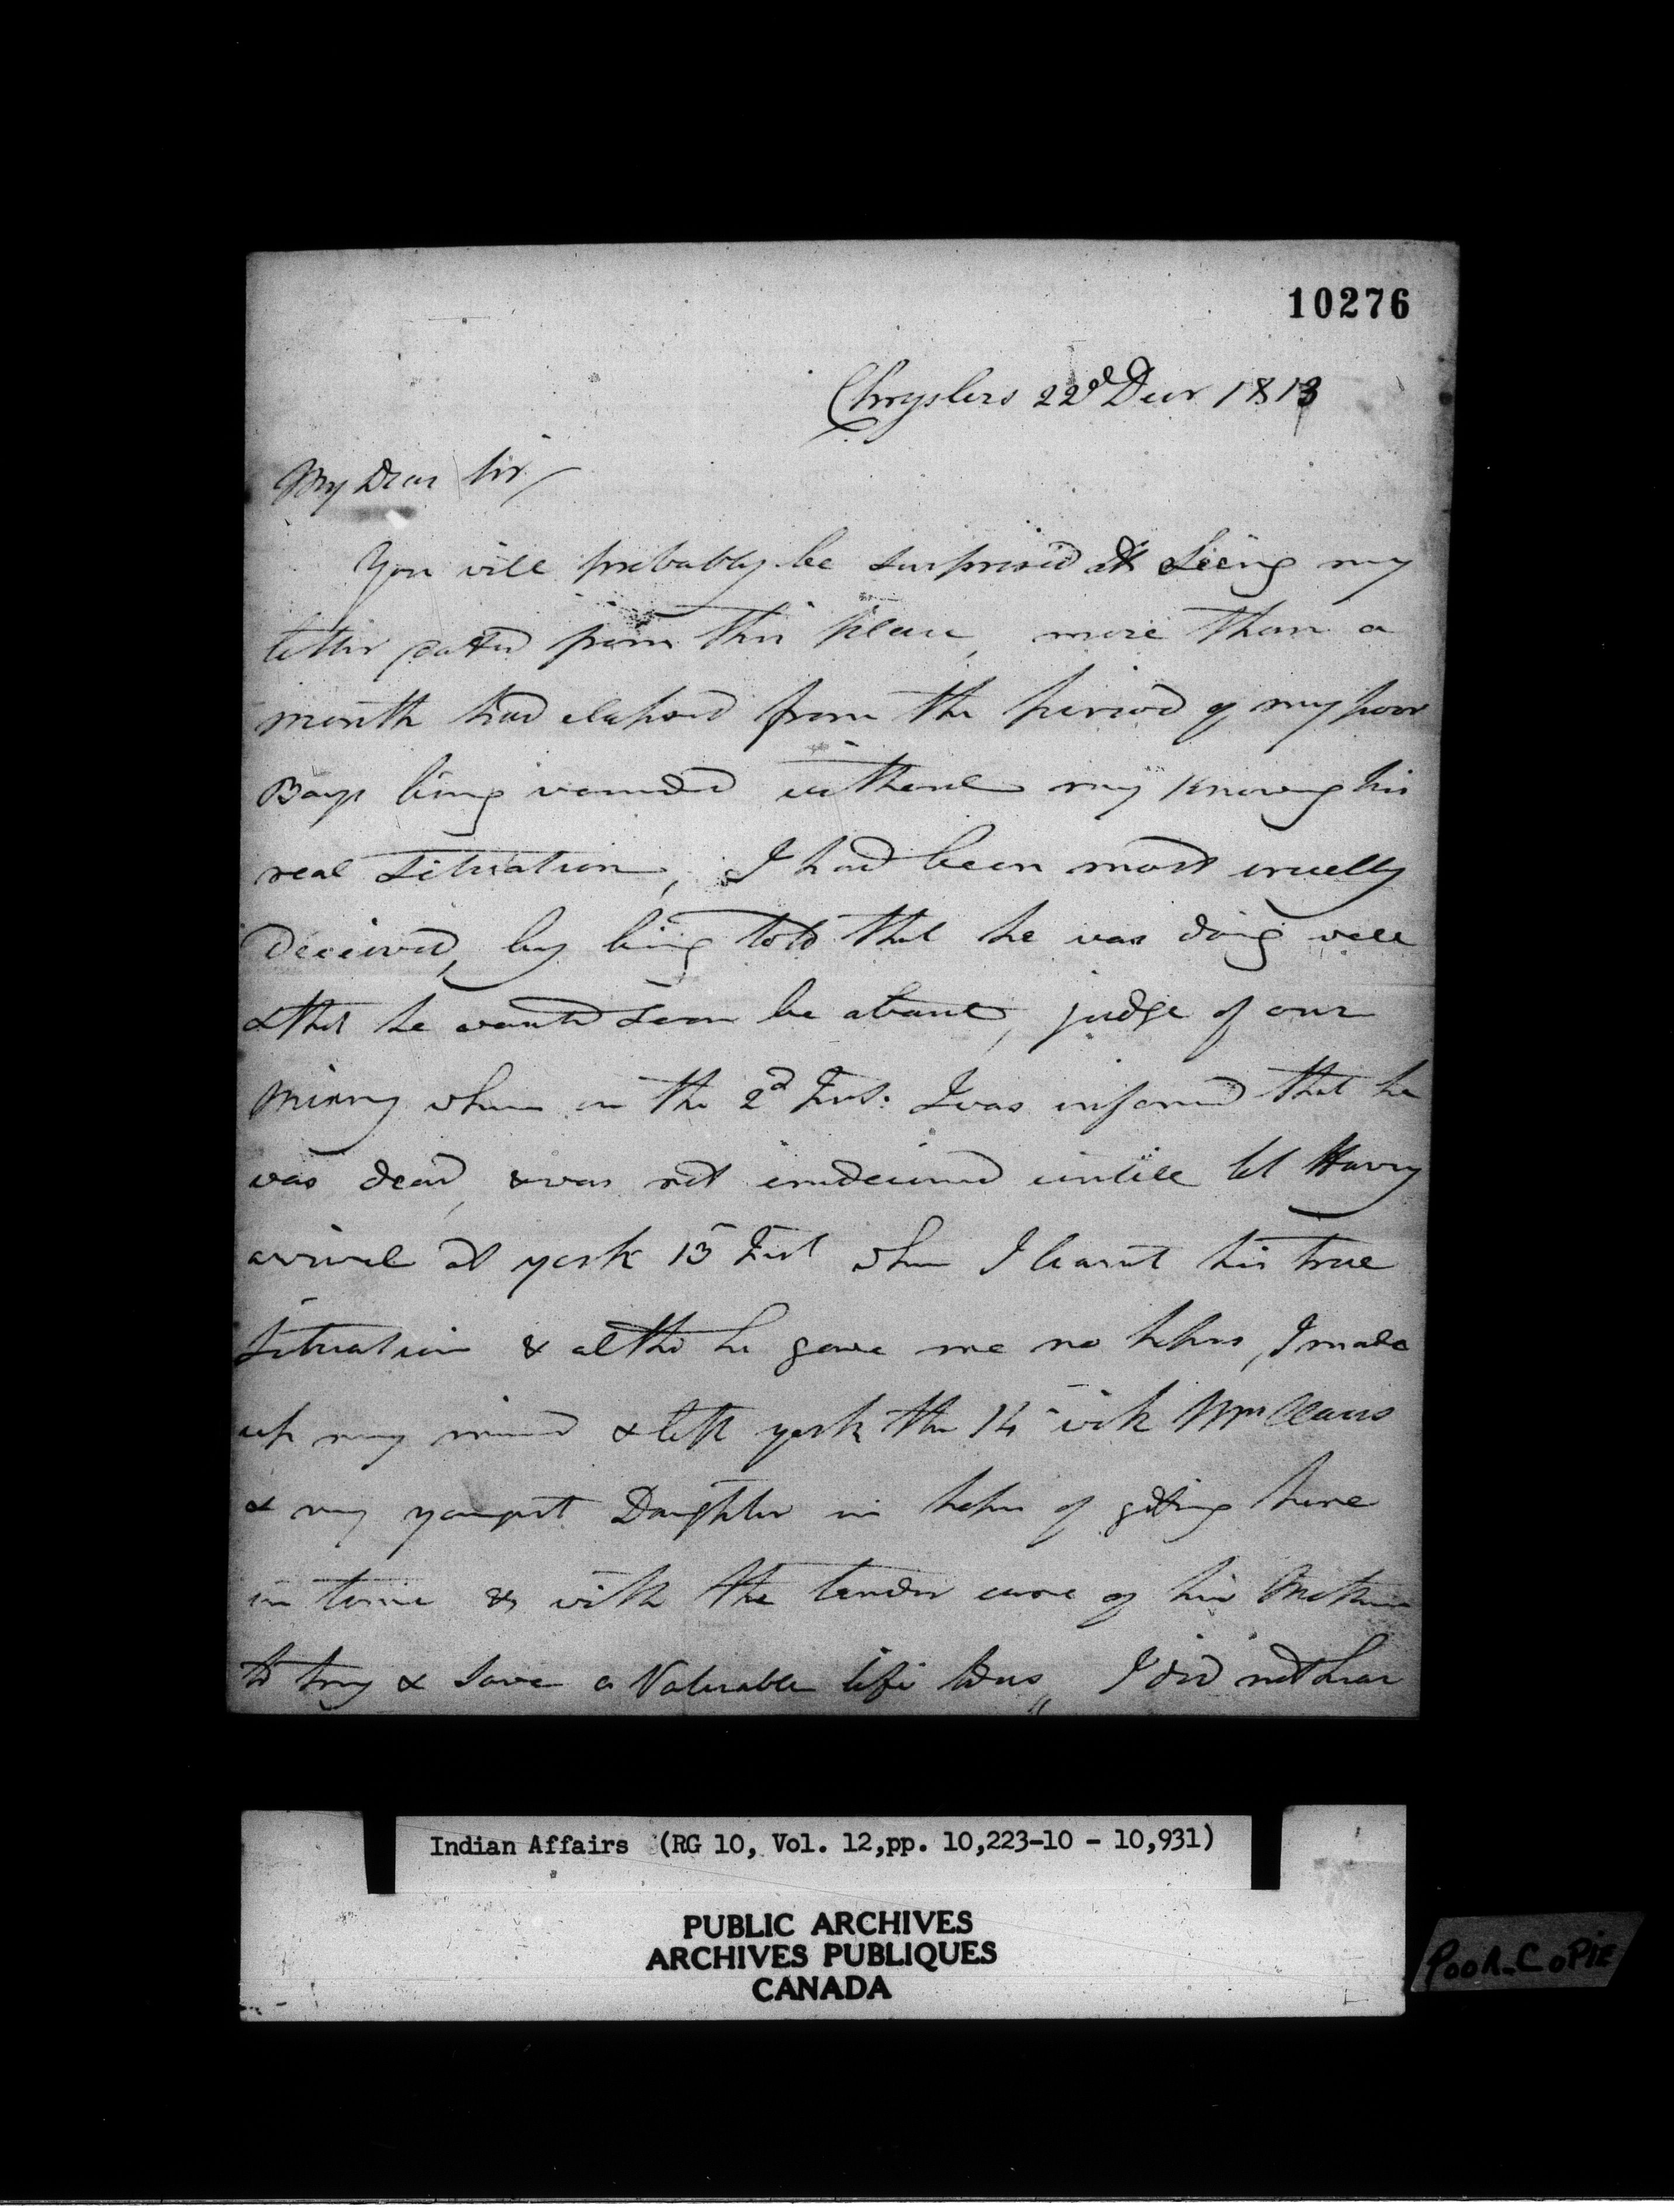 10276
Chryslers 22d Decr 1813
My Dear Sir
You will probably be surprised at Seeing my
letter dated from this place, more than a
month had elapsed from the period of my poor
Boys being wounded without my Knowing his
real Situation, I had been most cruelly
Deceived, by being told that he was doing well
& that he would soon be about, judge of our
misery when on the 2d Inst: I was informed that he
was dead, & was not undeceived untill Col Harvey
arrived at york 13 Inst when I learnt his true
Situation & altho he gave me no hopes, I made
up my mind & left york the 14 with Mrs Claus
& my youngest Daughter in hopes of getting here
in time & with the tender care of his Mother
to try & save a Valuable life to us, I did not hear
Indian Affairs (RG 10, Vol. 12,pp. 10,223-10 - 10,931)
PUBLIC ARCHIVES
ARCHIVES PUBLIQUES
CANADA
POOR COPIE